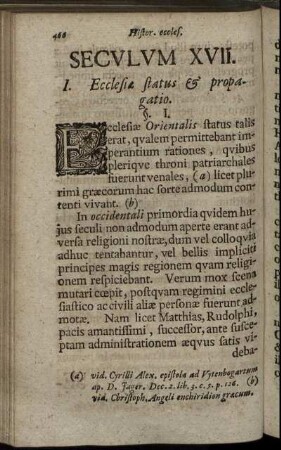 468 Histor. eccles.
SECVLVM XVII.
I. Ecclesiæ status & propa-
gatio.
§. I.
Ecclesiæ Orientalis status talis
erat, qvalem permittebant im-
perantium rationes, qvibus
pleriqve throni patriarchales
fuerunt venales, (a) licet plu-
rimi græcorum hac sorte admodum con-
tenti vivant. (b)
In occidentali primordia qvidem hu-
jus seculi non admodum aperte erant ad-
versa religioni nostræ, dum vel colloqvia
adhuc tentabantur, vel bellis impliciti
principes magis regionem qvam religi-
onem respiciebant. Verum mox scena
mutari cœpit, postqvam regimini eccle-
siastico ac civili aliæ personæ fuerunt ad-
motæ. Nam licet Matthias, Rudolphi,
pacis amantissimi, successor, ante susce-
ptam administrationem æqvus satis vi-
deba-
(a) vid. Cyrilli Alex. epistola ad Vytenbogartum
ap. D. Jäger. Dec. 2. lib. 3. c. 3. p. 126. (b)
vid. Christoph. Angeli enchiridion græcum.